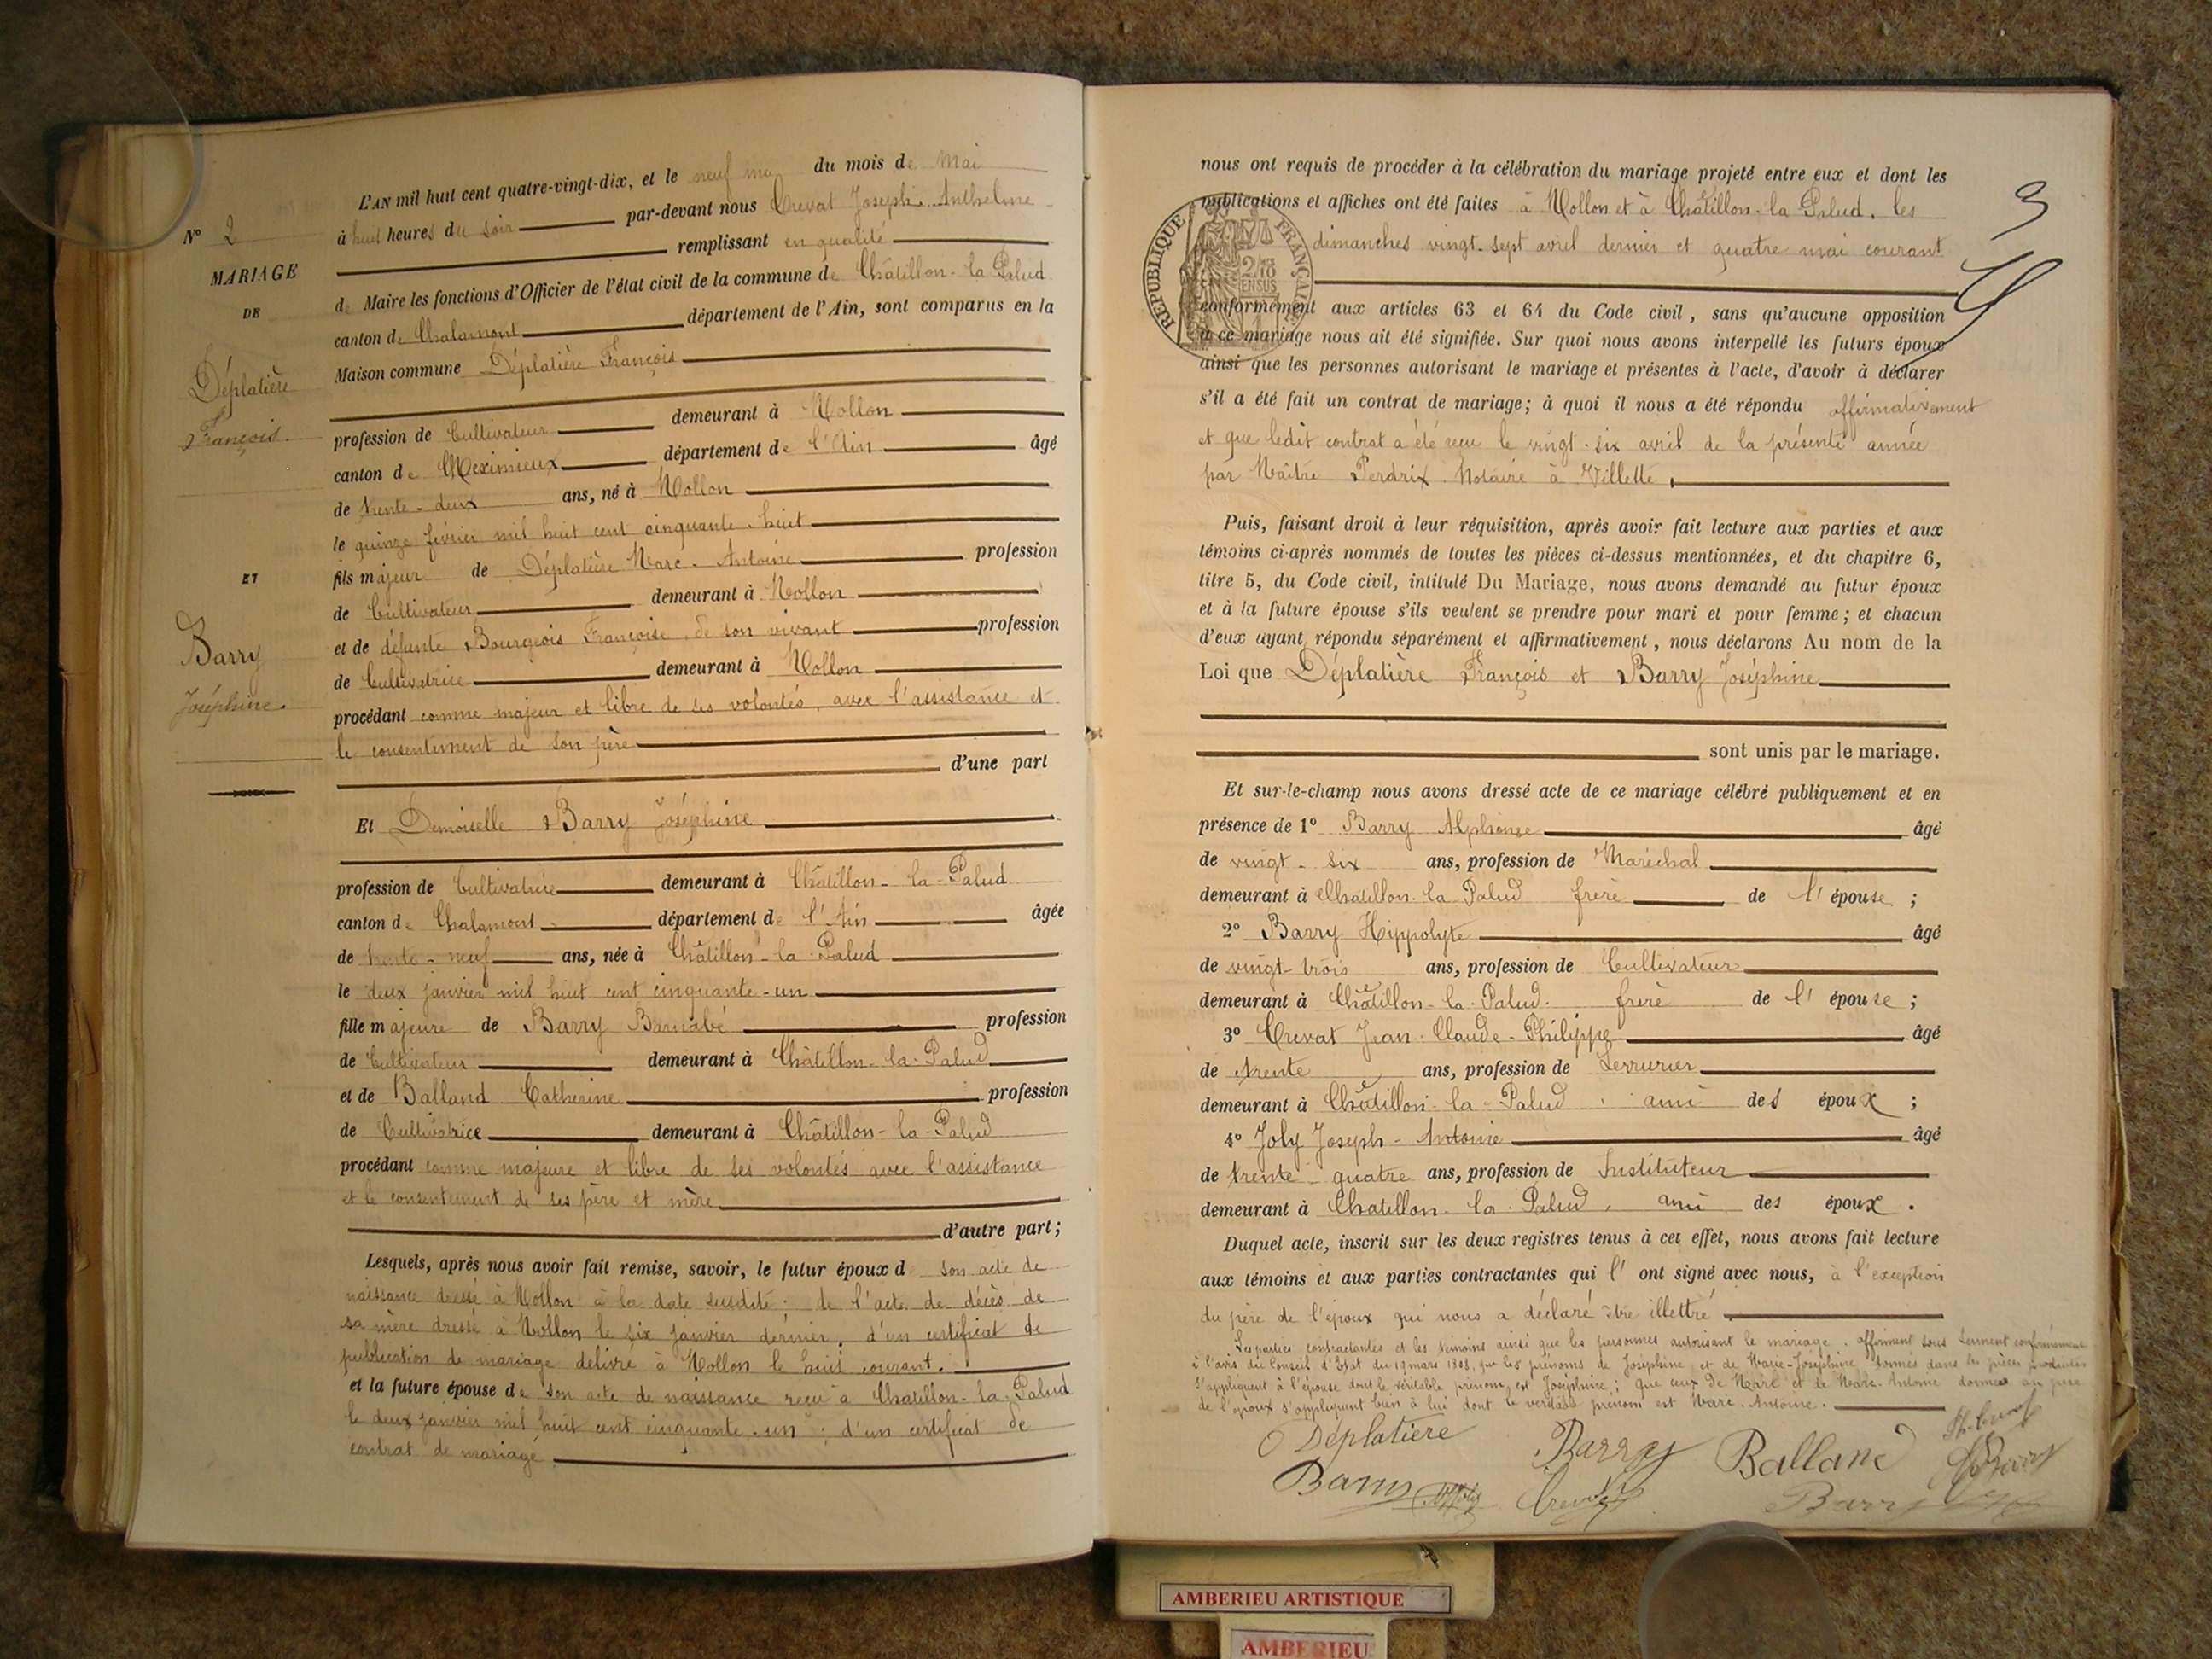 N° 2
MARIAGE
DE
Déplatière
François.
ET
Barry
Joséphine.
L'AN mil huit cent quatre-vingt-dix, et le neuf du mois de Mai
à huit heures du soir par-devant nous Crevat Joseph Anthelme
remplissant en qualité
de Maire les fonctions d'Officier de l'état civil de la commune de Châtillon-la-Palud
canton de Chalamont département de l'Ain, sont comparus en la
Maison commune Déplatière François
profession de Cultivateur demeurant à Mollon
canton de Meximieux département de l'Ain âgé
de trente-deux ans, né à Mollon
le quinze février mil huit cent cinquante-huit
fils majeur de Déplatière Marc-Antoine profession
de Cultivateur demeurant à Mollon
et de défunte Bourgeois Françoise, de son vivant profession
de Cultivatrice demeurant à Mollon
procédant comme majeur et libre de ses volontés, avec l'assistance et
le consentement de son père
d'une part
Et Demoiselle Barry Joséphine
profession de Cultivatrice demeurant à Châtillon-la-Palud
canton de Chalamont département de l'Ain âgée
de trente-neuf ans, née à Châtillon-la-Palud
le deux janvier mil huit cent cinquante-un
fille majeure de Barry Barnabé profession
de Cultivateur demeurant à Châtillon-la-Palud
et de Balland Catherine profession
de Cultivatrice demeurant à Châtillon-la-Palud
procédant comme majeure et libre de ses volontés avec l'assistance
et le consentement de ses père et mère
d'autre part;
Lesquels, après nous avoir fait remise, savoir, le futur époux d son acte de
naissance dressé à Mollon à la date susdite; de l'acte de décès de
sa mère dressé à Mollon le six janvier dernier, d'un certificat de
publication de mariage délivré à Mollon le huit courant.
et la future épouse de son acte de naissance reçu à Chatillon-la-Palud
le deux janvier mil huit cent cinquante-un; d'un certificat de
contrat de mariage
3
nous ont requis de procéder à la célébration du mariage projeté entre eux et dont les
publications et affiches ont été faites à Mollon et à Châtillon-la-Palud, les
dimanches vingt-sept avril dernier et quatre mai courant
RÉPUBLIQUE FRANÇAISE
conformément aux articles 63 et 64 du Code civil, sans qu'aucune opposition
à ce mariage nous ait été signifiée. Sur quoi nous avons interpellé les futurs époux
ainsi que les personnes autorisant le mariage et présentes à l'acte, d'avoir à déclarer
s'il a été fait un contrat de mariage; à quoi il nous a été répondu affirmativement
et que ledit contrat a été reçu le vingt-six avril de la présente année
par Maître Perdrix Notaire à Villette,
Puis, faisant droit à leur réquisition, après avoir fait lecture aux parties et aux
témoins ci-après nommés de toutes les pièces ci-dessus mentionnées, et du chapitre 6,
titre 5, du Code civil, intitulé Du Mariage, nous avons demandé au futur époux
et à la future épouse s'ils veulent se prendre pour mari et pour femme; et chacun
d'eux ayant répondu séparément et affirmativement, nous déclarons Au nom de la
Loi que Déplatière François et Barry Joséphine
sont unis par le mariage.
Et sur-le-champ nous avons dressé acte de ce mariage célébré publiquement et en
présence de 1° Barry Alphonse âgé
de vingt-six ans, profession de Maréchal
demeurant à Chatillon-la-Palud frère de l'épouse;
2° Barry Hippolyte âgé
de vingt-trois ans, profession de Cultivateur
demeurant à Châtillon-la-Palud. frère de l'épouse;
3° Crevat Jean-Claude-Philippe âgé
de trente ans, profession de Serrurier
demeurant à Châtillon-la-Palud, ami des époux;
4° Joly Joseph-Antoine âgé
de trente-quatre ans, profession de Instituteur
demeurant à Chatillon-la-Palud, ami des époux.
Duquel acte, inscrit sur les deux registres tenus à cet effet, nous avons fait lecture
aux témoins et aux parties contractantes qui l'ont signé avec nous, à l'exception
du père de l'époux qui nous a déclaré être illettré
Les parties contractantes et les témoins ainsi que les personnes autorisant le mariage, affirment sous serment conformément
à l'avis du Conseil d'Etat du 19 mars 1808, que les prénoms de Joséphine et de Marie-Joséphine, donnés dans les pièces produites
s'appliquent à l'épouse dont le véritable prénom est Joséphine; que ceux de Marc et de Marc-Antoine donnés au père
de l'époux s'appliquent bien à lui dont le véritable prénom est Marc-Antoine.
Déplatière Barry Balland
Barry Crevat Barry
AMBERIEU ARTISTIQUE
AMBERIEU